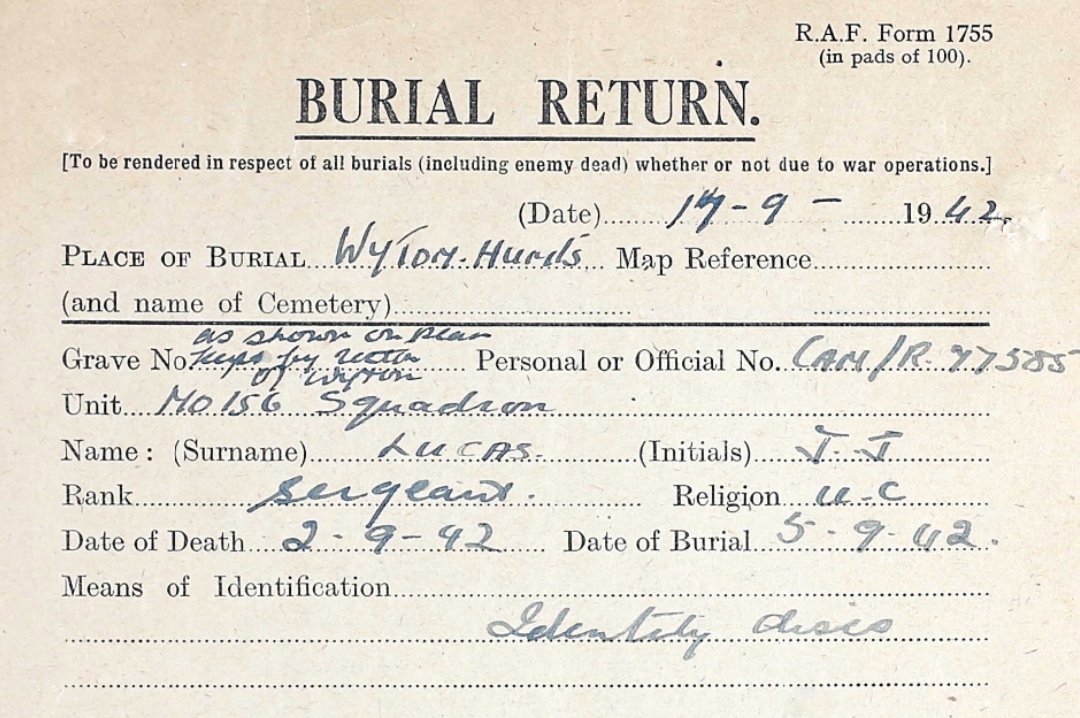 R.A.F. Form 1755
(in pads of 100).
BURIAL RETURN.
[To be rendered in respect of all burials (including enemy dead) whether or not due to war operations.]
(Date) 17-9- 1942.
PLACE OF BURIAL Wyton. Hunds Map Reference
(and name of Cemetery)
as shown on plan
Grave No. keps by rector Personal or Official No. CAM/R. 77585
of Wyton
Unit NO 156 Squadron
Name: (Surname) LUCAS. (Initials) J. J
Rank Sergeant. Religion U-C
Date of Death 2-9-42 Date of Burial 5-9-42.
Means of Identification
Identity discs